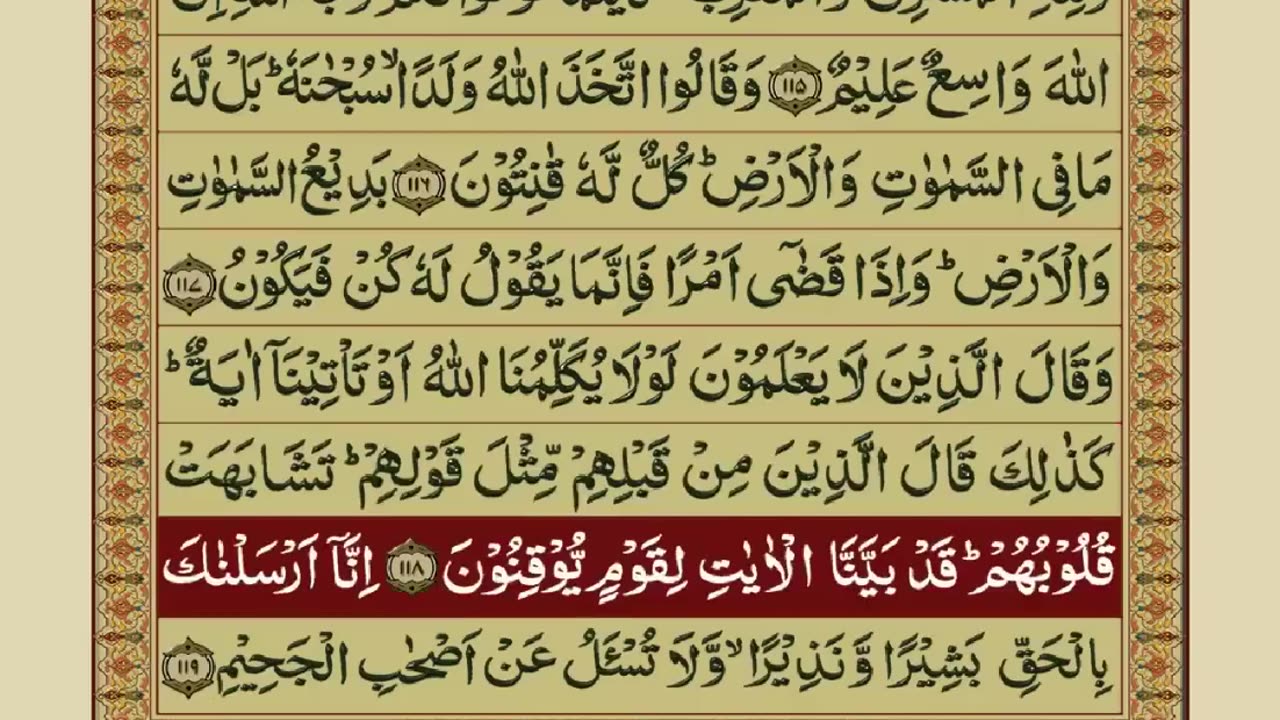 اللهَ وَاسِعٌ عَلِيْمٌ ﴿۱۱۵﴾ وَقَالُوا اتَّخَذَ اللهُ وَلَدًا ۙ سُبْحٰنَهٗ ؕ بَلْ لَّهٗ
مَا فِى السَّمٰوٰتِ وَالْاَرْضِ ؕ كُلٌّ لَّهٗ قٰنِتُوْنَ ﴿۱۱۶﴾ بَدِيْعُ السَّمٰوٰتِ
وَالْاَرْضِ ؕ وَاِذَا قَضٰٓى اَمْرًا فَاِنَّمَا يَقُوْلُ لَهٗ كُنْ فَيَكُوْنُ ﴿۱۱۷﴾
وَقَالَ الَّذِيْنَ لَا يَعْلَمُوْنَ لَوْلَا يُكَلِّمُنَا اللهُ اَوْ تَاْتِيْنَآ اٰيَةٌ ؕ
كَذٰلِكَ قَالَ الَّذِيْنَ مِنْ قَبْلِهِمْ مِّثْلَ قَوْلِهِمْ ؕ تَشَابَهَتْ
قُلُوْبُهُمْ ؕ قَدْ بَيَّنَّا الْاٰيٰتِ لِقَوْمٍ يُّوْقِنُوْنَ ﴿۱۱۸﴾ اِنَّآ اَرْسَلْنٰكَ
بِالْحَقِّ بَشِيْرًا وَّنَذِيْرًا ۙ وَّلَا تُسْـَٔلُ عَنْ اَصْحٰبِ الْجَحِيْمِ ﴿۱۱۹﴾